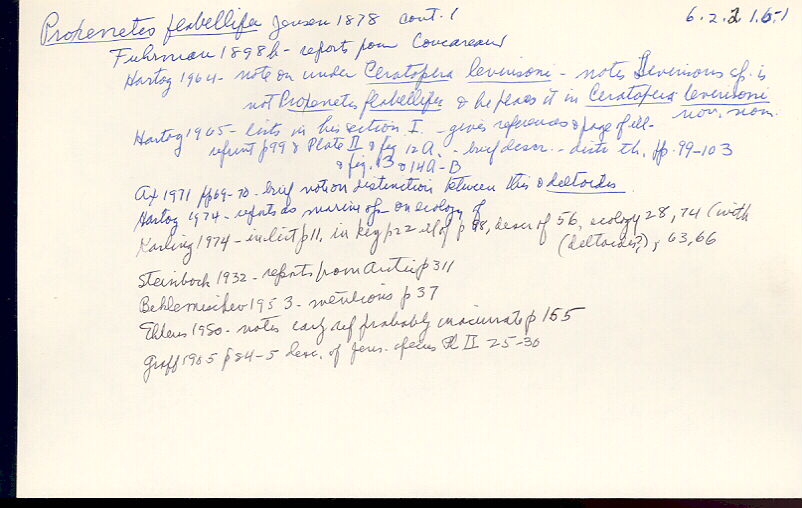 Proxenetes flabellifer Jensen 1878 cont. 1 6.2.2 1.6-1
Fuhrman 1898b - reports from Concareau
Hartog 1964 - note on under Ceratopera levinseni - notes Levinsons sp. is
not Proxenetes flabellifer & he places it in Ceratopera levinseni
nov. nom.
Hartog 1965 - lists in his section I. - gives references & page of ill-
refers to p 99 & Plate II & fig 12A. - brief descr. - distr. th. pp. 99-103
& fig. 13 & 14A-B
Ax 1971 pp 69-70 - brief note on distinction between this & deltoides.
Hartog 1974 - reports as marine sp. on ecology of
Karling 1974 - in list p 11, in key p 22 ill of p 98, descr of 56, ecology 28, 74 (with
(deltoides?), 63, 66
Steinbock 1932 - reports from Arctic p 311
Beklemischev 1953 - mentions p 37
Ehlers 1980 - notes early ref probably inaccurate p 155
Graff 1905 p 84-5 desc. of Jens. species Pl II 25-30